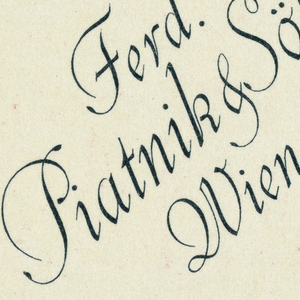 Ferd.
Piatnik & Sö
Wien